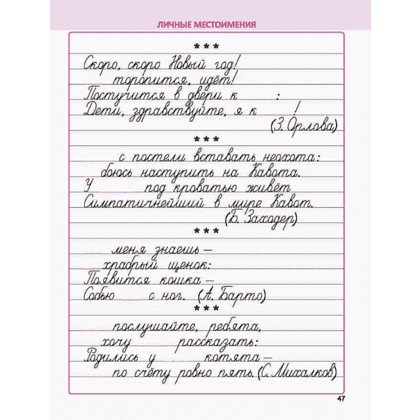 ЛИЧНЫЕ МЕСТОИМЕНИЯ
***
Скоро, скоро Новый год!
торопится, идёт!
Постучится в двери к :
Дети, здравствуйте, я к !
(З. Орлова)
***
с постели вставать неохота:
боюсь наступить на Кавота.
У под кроватью живёт
Симпатичнейший в мире Кавот.
(Б. Заходер)
***
меня знаешь –
храбрый щенок:
Появится кошка –
Собью с ног. (А. Барто)
***
послушайте, ребята,
хочу рассказать:
Родились у котята –
по счёту ровно пять. (С. Михалков)
47